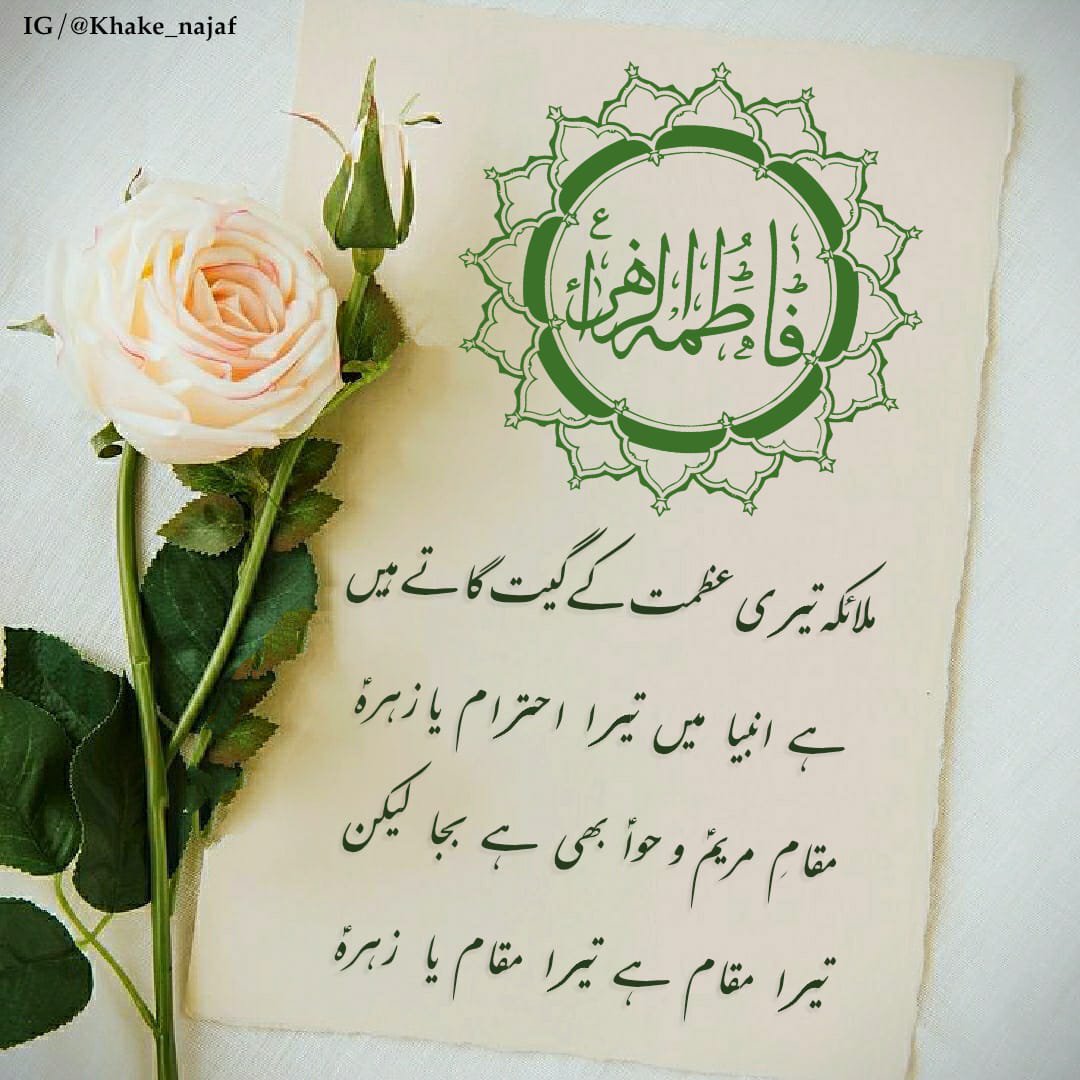 IG/@Khake_najaf
فاطمة الزهراء ع
ملائکہ تیری عظمت کے گیت گاتے ہیں
ہے انبیا میں تیرا احترام یا زہرہؑ
مقامِ مریمؑ و حواؑ بھی ہے بجا لیکن
تیرا مقام ہے تیرا مقام یا زہرہؑ